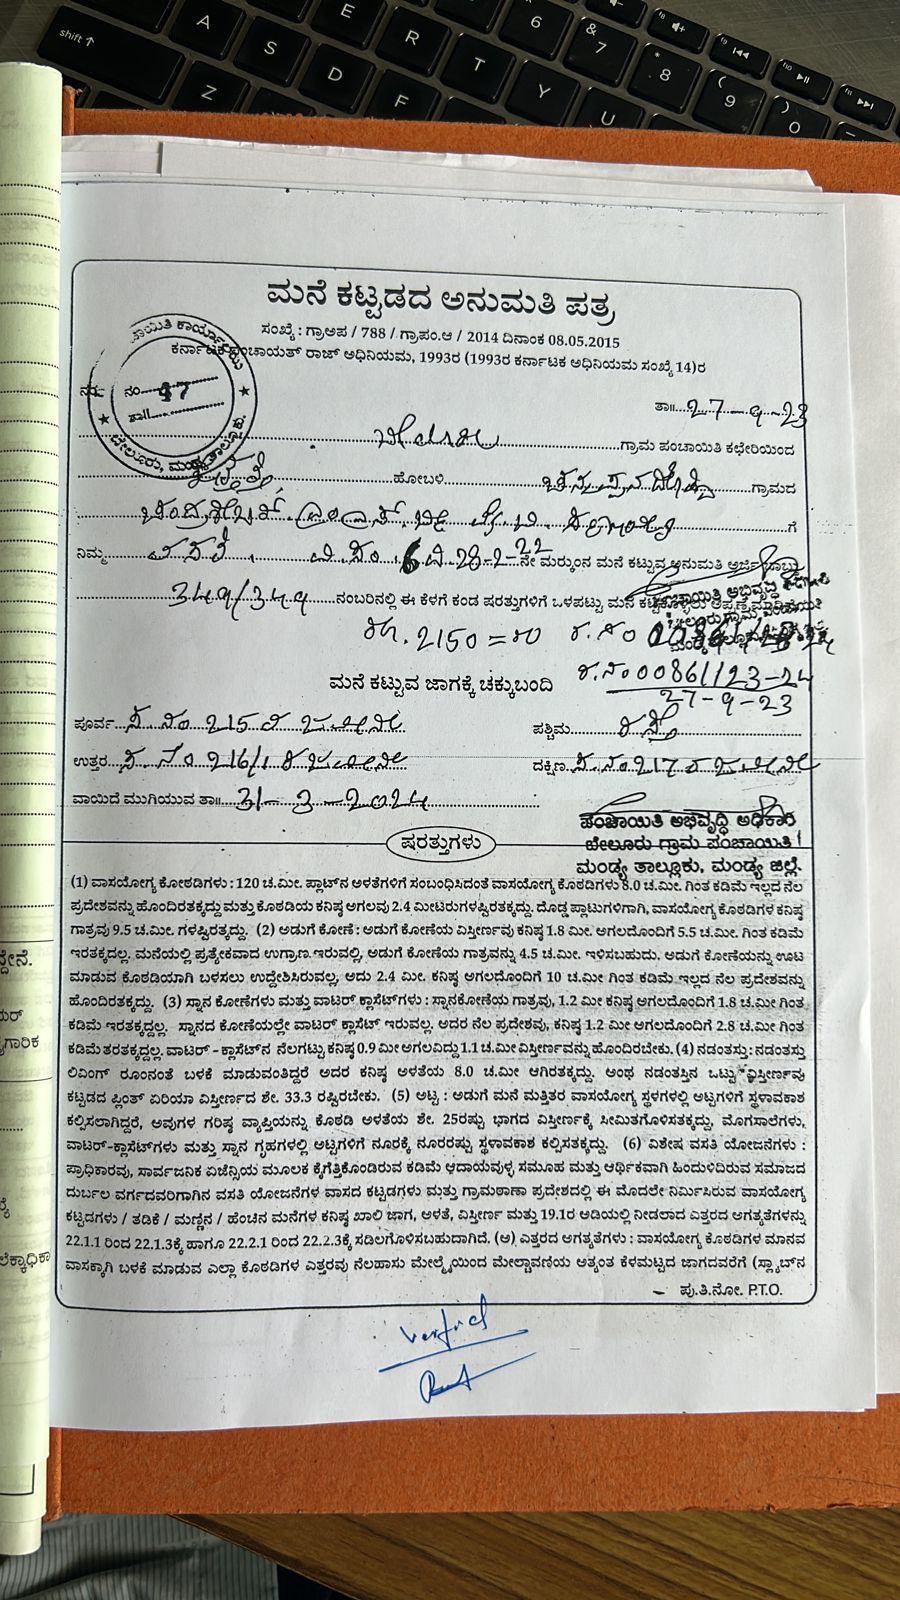 ಮನೆ ಕಟ್ಟಡದ ಅನುಮತಿ ಪತ್ರ
ಸಂಖ್ಯೆ : ಗ್ರಾಅಪ / 788 / ಗ್ರಾಪಂ.ಆ / 2014 ದಿನಾಂಕ 08.05.2015
ಕರ್ನಾಟಕ ಪಂಚಾಯತ್ ರಾಜ್ ಅಧಿನಿಯಮ, 1993ರ (1993ರ ಕರ್ನಾಟಕ ಅಧಿನಿಯಮ ಸಂಖ್ಯೆ 14)ರ
ನಂ 97
ತಾ॥ 27-9-23
ಬೇಲೂರು, ಮಂಡ್ಯ ತಾಲ್ಲೂಕು.
ಗ್ರಾಮ ಪಂಚಾಯಿತಿ ಕಛೇರಿಯಿಂದ
ಹೋಬಳಿ ಗ್ರಾಮದ
ಗೆ
ನಿಮ್ಮ 28-2-22 ನೇ ಮರ್‍ಕುಂನ ಮನೆ ಕಟ್ಟುವ ಅನುಮತಿ ಅರ್ಜಿ
349/349 ನಂಬರಿನಲ್ಲಿ ಈ ಕೆಳಗೆ ಕಂಡ ಷರತ್ತುಗಳಿಗೆ ಒಳಪಟ್ಟು ಮನೆ
2150=00
ಮನೆ ಕಟ್ಟುವ ಜಾಗಕ್ಕೆ ಚಕ್ಕುಬಂದಿ ರ.ನಂ 00861/23-24
27-9-23
ಪೂರ್ವ ಸ.ನಂ 215 ರ ಜಮೀನು ಪಶ್ಚಿಮ ರಸ್ತೆ
ಉತ್ತರ ಸ.ನಂ 216/1 ರ ಜಮೀನು ದಕ್ಷಿಣ ಸ.ನಂ 217 ರ ಜಮೀನು
ವಾಯಿದೆ ಮುಗಿಯುವ ತಾ॥ 31-3-2024
ಪಂಚಾಯಿತಿ ಅಭಿವೃದ್ಧಿ ಅಧಿಕಾರಿ
ಬೇಲೂರು ಗ್ರಾಮ ಪಂಚಾಯಿತಿ
ಮಂಡ್ಯ ತಾಲ್ಲೂಕು, ಮಂಡ್ಯ ಜಿಲ್ಲೆ.
ಷರತ್ತುಗಳು
(1) ವಾಸಯೋಗ್ಯ ಕೋಠಡಿಗಳು : 120 ಚ.ಮೀ. ಪ್ಲಾಟ್‌ನ ಅಳತೆಗಳಿಗೆ ಸಂಬಂಧಿಸಿದಂತೆ ವಾಸಯೋಗ್ಯ ಕೊಠಡಿಗಳು 8.0 ಚ.ಮೀ. ಗಿಂತ ಕಡಿಮೆ ಇಲ್ಲದ ನೆಲ
ಪ್ರದೇಶವನ್ನು ಹೊಂದಿರತಕ್ಕದ್ದು ಮತ್ತು ಕೊಠಡಿಯ ಕನಿಷ್ಠ ಅಗಲವು 2.4 ಮೀಟರುಗಳಷ್ಟಿರತಕ್ಕದ್ದು. ದೊಡ್ಡ ಪ್ಲಾಟುಗಳಿಗಾಗಿ, ವಾಸಯೋಗ್ಯ ಕೊಠಡಿಗಳ ಕನಿಷ್ಠ
ಗಾತ್ರವು 9.5 ಚ.ಮೀ. ಗಳಷ್ಟಿರತಕ್ಕದ್ದು. (2) ಅಡುಗೆ ಕೋಣೆ : ಅಡುಗೆ ಕೋಣೆಯ ವಿಸ್ತೀರ್ಣವು ಕನಿಷ್ಠ 1.8 ಮೀ. ಅಗಲದೊಂದಿಗೆ 5.5 ಚ.ಮೀ. ಗಿಂತ ಕಡಿಮೆ
ಇರತಕ್ಕದಲ್ಲ. ಮನೆಯಲ್ಲಿ ಪ್ರತ್ಯೇಕವಾದ ಉಗ್ರಾಣ ಇರುವಲ್ಲಿ, ಅಡುಗೆ ಕೋಣೆಯ ಗಾತ್ರವನ್ನು 4.5 ಚ.ಮೀ. ಇಳಿಸಬಹುದು. ಅಡುಗೆ ಕೋಣೆಯನ್ನು ಊಟ
ಮಾಡುವ ಕೊಠಡಿಯಾಗಿ ಬಳಸಲು ಉದ್ದೇಶಿಸಿರುವಲ್ಲಿ, ಅದು 2.4 ಮೀ. ಕನಿಷ್ಠ ಅಗಲದೊಂದಿಗೆ 10 ಚ.ಮೀ ಗಿಂತ ಕಡಿಮೆ ಇಲ್ಲದ ನೆಲ ಪ್ರದೇಶವನ್ನು
ಹೊಂದಿರತಕ್ಕದ್ದು. (3) ಸ್ನಾನ ಕೋಣೆಗಳು ಮತ್ತು ವಾಟರ್ ಕ್ಲಾಸೆಟ್‌ಗಳು : ಸ್ನಾನಕೋಣೆಯ ಗಾತ್ರವು, 1.2 ಮೀ ಕನಿಷ್ಠ ಅಗಲದೊಂದಿಗೆ 1.8 ಚ.ಮೀ ಗಿಂತ
ಕಡಿಮೆ ಇರತಕ್ಕದ್ದಲ್ಲ. ಸ್ನಾನದ ಕೋಣೆಯಲ್ಲೇ ವಾಟರ್ ಕ್ಲಾಸೆಟ್ ಇರುವಲ್ಲಿ. ಅದರ ನೆಲ ಪ್ರದೇಶವು, ಕನಿಷ್ಠ 1.2 ಮೀ ಅಗಲದೊಂದಿಗೆ 2.8 ಚ.ಮೀ ಗಿಂತ
ಕಡಿಮೆ ತರತಕ್ಕದ್ದಲ್ಲ. ವಾಟರ್ - ಕ್ಲಾಸೆಟ್‌ನ ನೆಲಗಟ್ಟು ಕನಿಷ್ಠ 0.9 ಮೀ ಅಗಲವಿದ್ದು 1.1 ಚ.ಮೀ ವಿಸ್ತೀರ್ಣವನ್ನು ಹೊಂದಿರಬೇಕು. (4) ನಡಂತಸ್ತು : ನಡಂತಸ್ತು
ಲಿವಿಂಗ್ ರೂಂನಂತೆ ಬಳಕೆ ಮಾಡುವಂತಿದ್ದರೆ ಅದರ ಕನಿಷ್ಠ ಅಳತೆಯ 8.0 ಚ.ಮೀ ಆಗಿರತಕ್ಕದ್ದು. ಅಂಥ ನಡಂತಸ್ತಿನ ಒಟ್ಟು ವಿಸ್ತೀರ್ಣವು
ಕಟ್ಟಡದ ಪ್ಲಿಂತ್ ಏರಿಯಾ ವಿಸ್ತೀರ್ಣದ ಶೇ. 33.3 ರಷ್ಟಿರಬೇಕು. (5) ಅಟ್ಟ : ಅಡುಗೆ ಮನೆ ಮತ್ತಿತರ ವಾಸಯೋಗ್ಯ ಸ್ಥಳಗಳಲ್ಲಿ ಅಟ್ಟಗಳಿಗೆ ಸ್ಥಳಾವಕಾಶ
ಕಲ್ಪಿಸಲಾಗಿದ್ದರೆ, ಅವುಗಳ ಗರಿಷ್ಠ ವ್ಯಾಪ್ತಿಯನ್ನು ಕೊಠಡಿ ಅಳತೆಯ ಶೇ. 25ರಷ್ಟು ಭಾಗದ ವಿಸ್ತೀರ್ಣಕ್ಕೆ ಸೀಮಿತಗೊಳಿಸತಕ್ಕದ್ದು, ಮೊಗಸಾಲೆಗಳು,
ವಾಟರ್-ಕ್ಲಾಸೆಟ್‌ಗಳು ಮತ್ತು ಸ್ನಾನ ಗೃಹಗಳಲ್ಲಿ ಅಟ್ಟಗಳಿಗೆ ನೂರಕ್ಕೆ ನೂರರಷ್ಟು ಸ್ಥಳಾವಕಾಶ ಕಲ್ಪಿಸತಕ್ಕದ್ದು. (6) ವಿಶೇಷ ವಸತಿ ಯೋಜನೆಗಳು :
ಪ್ರಾಧಿಕಾರವು, ಸಾರ್ವಜನಿಕ ಏಜೆನ್ಸಿಯ ಮೂಲಕ ಕೈಗೆತ್ತಿಕೊಂಡಿರುವ ಕಡಿಮೆ ಆದಾಯವುಳ್ಳ ಸಮೂಹ ಮತ್ತು ಆರ್ಥಿಕವಾಗಿ ಹಿಂದುಳಿದಿರುವ ಸಮಾಜದ
ದುರ್ಬಲ ವರ್ಗದವರಿಗಾಗಿನ ವಸತಿ ಯೋಜನೆಗಳ ವಾಸದ ಕಟ್ಟಡಗಳು ಮತ್ತು ಗ್ರಾಮಠಾಣಾ ಪ್ರದೇಶದಲ್ಲಿ ಈ ಮೊದಲೇ ನಿರ್ಮಿಸಿರುವ ವಾಸಯೋಗ್ಯ
ಕಟ್ಟದಗಳು / ತಡಿಕೆ / ಮಣ್ಣಿನ / ಹೆಂಚಿನ ಮನೆಗಳ ಕನಿಷ್ಠ ಖಾಲಿ ಜಾಗ, ಅಳತೆ, ವಿಸ್ತೀರ್ಣ ಮತ್ತು 19.1ರ ಅಡಿಯಲ್ಲಿ ನೀಡಲಾದ ಎತ್ತರದ ಅಗತ್ಯತೆಗಳನ್ನು
22.1.1 ರಿಂದ 22.1.3ಕ್ಕೆ ಹಾಗೂ 22.2.1 ರಿಂದ 22.2.3ಕ್ಕೆ ಸಡಿಲಗೊಳಿಸಬಹುದಾಗಿದೆ. (ಅ) ಎತ್ತರದ ಅಗತ್ಯತೆಗಳು : ವಾಸಯೋಗ್ಯ ಕೊಠಡಿಗಳ ಮಾನವ
ವಾಸಕ್ಕಾಗಿ ಬಳಕೆ ಮಾಡುವ ಎಲ್ಲಾ ಕೊಠಡಿಗಳ ಎತ್ತರವು ನೆಲಹಾಸು ಮೇಲ್ಮೈಯಿಂದ ಮೇಲ್ಚಾವಣಿಯ ಅತ್ಯಂತ ಕೆಳಮಟ್ಟದ ಜಾಗದವರೆಗೆ (ಸ್ಲ್ಯಾಬ್‌ನ
ಪು.ತಿ.ನೋ. P.T.O.